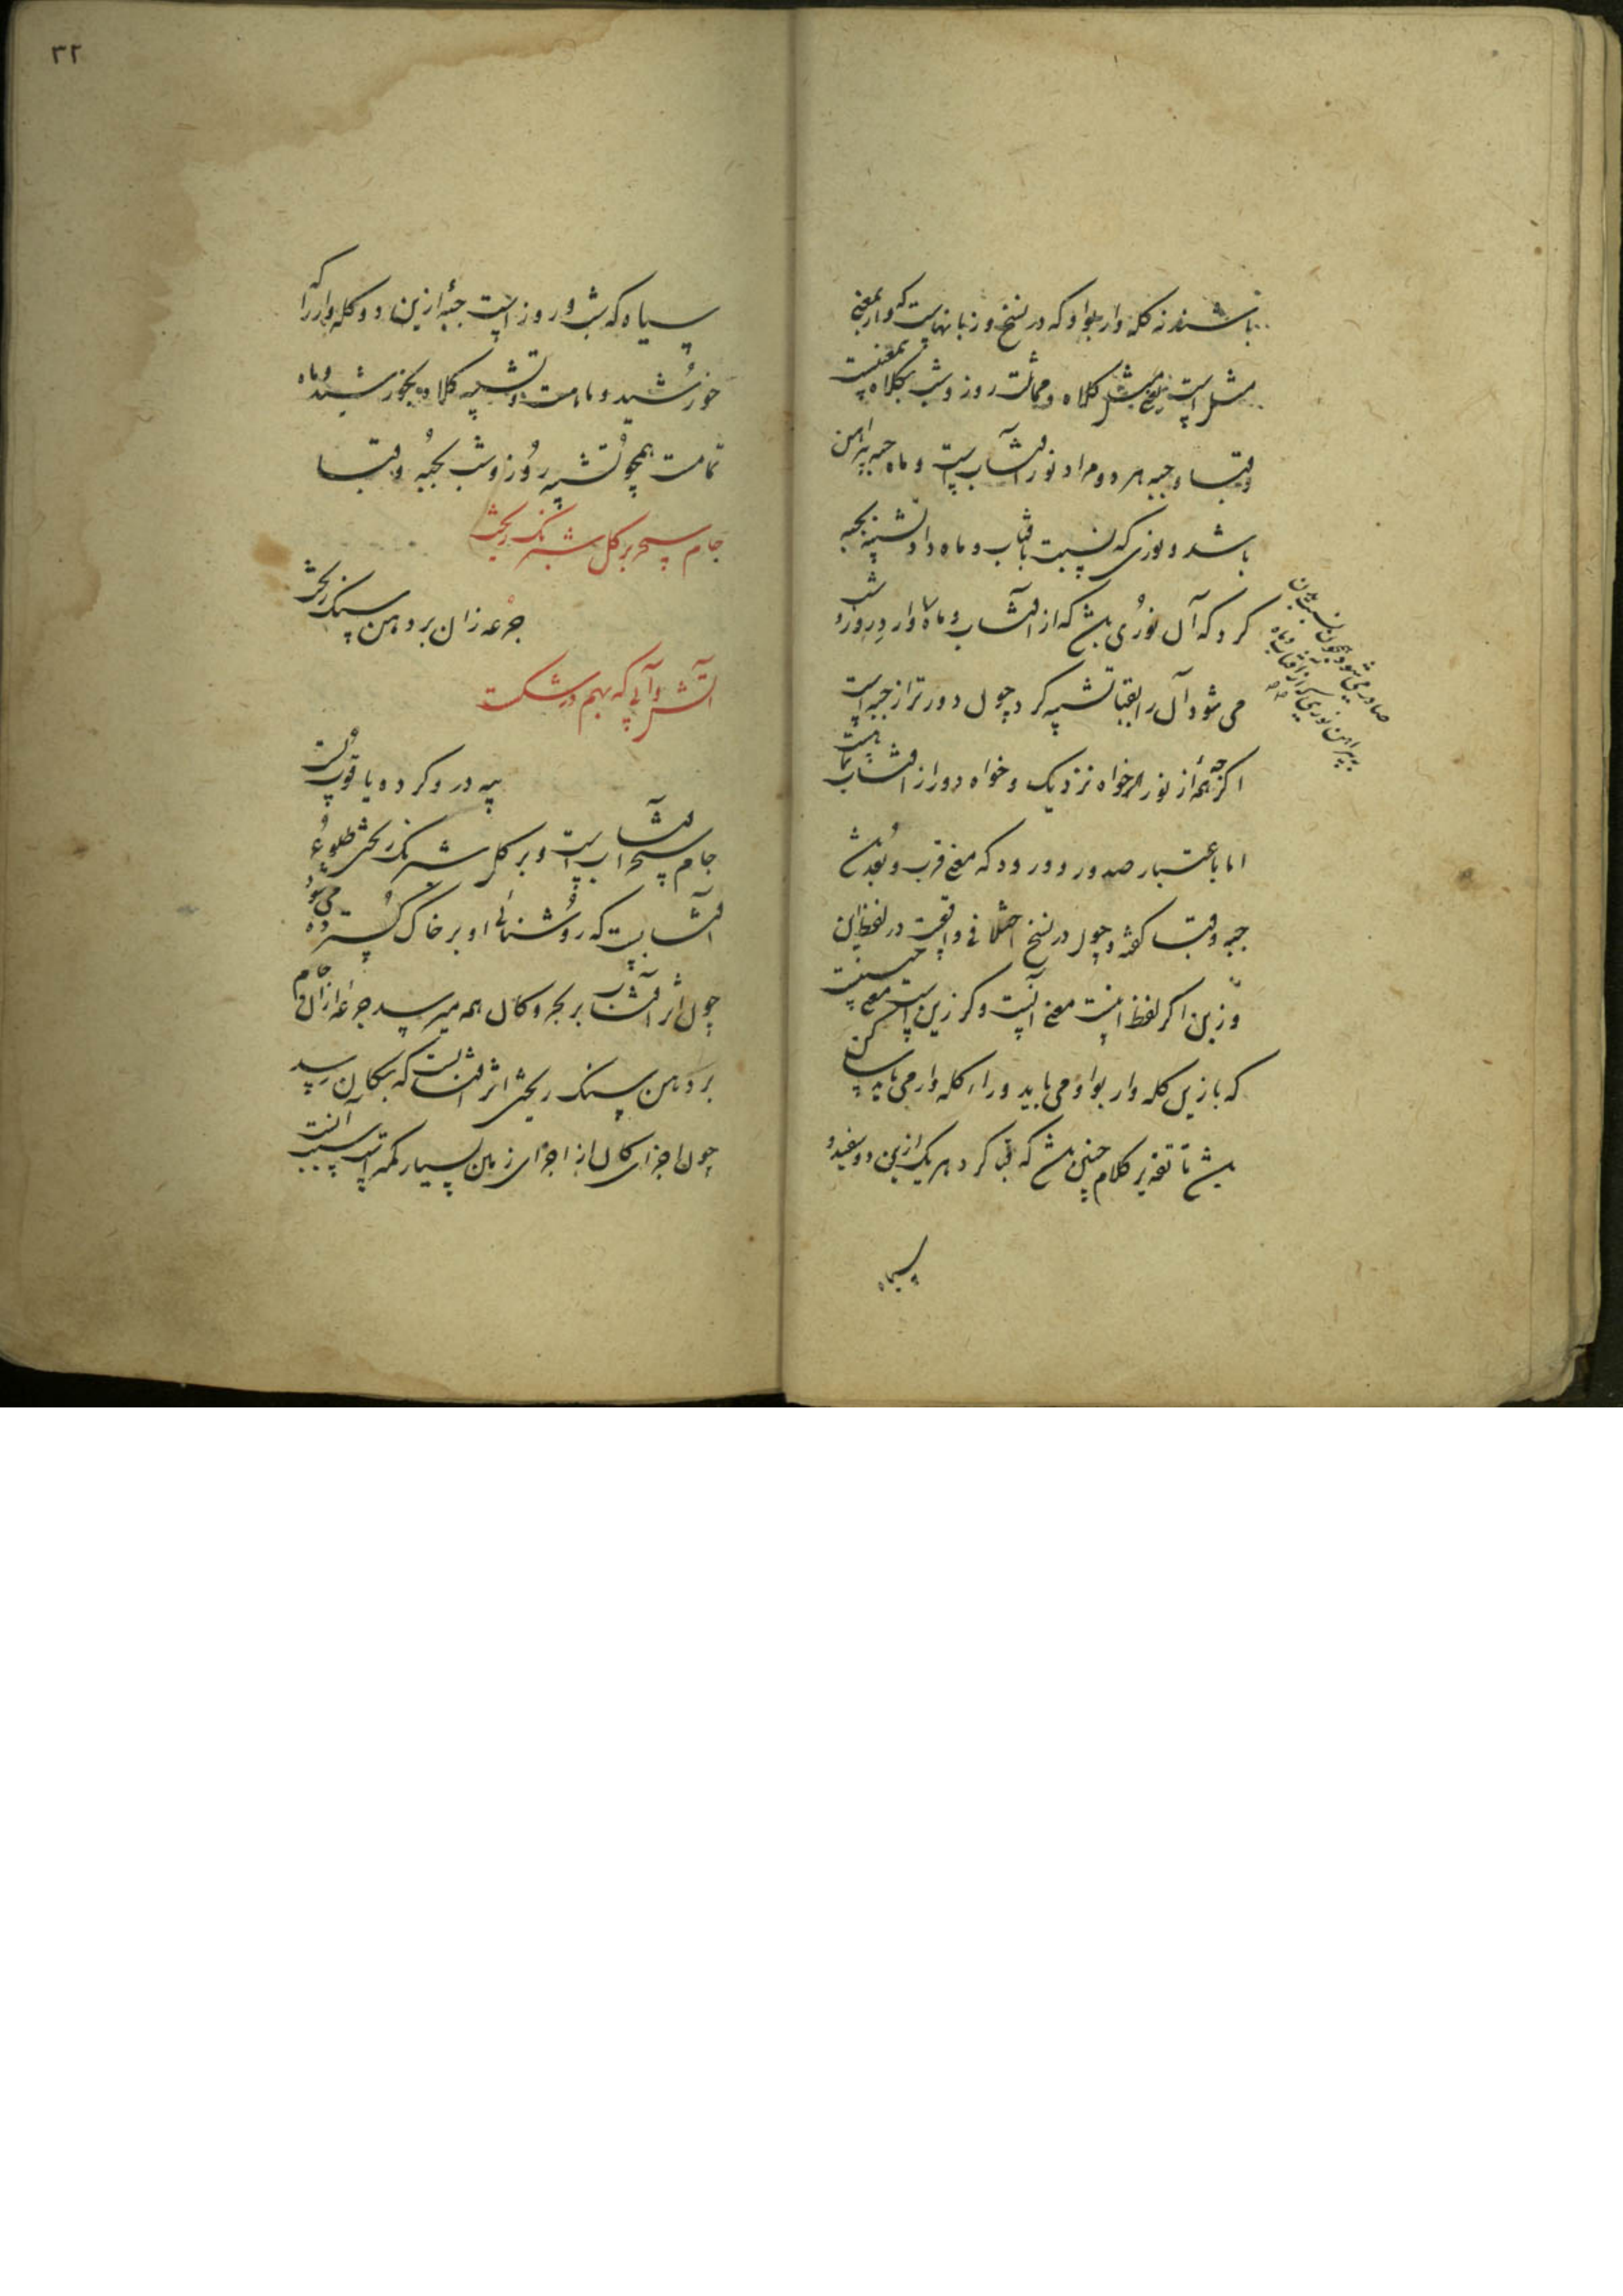 باشند نه کله وار بواو که در نسخ و زبانهاست که وار بمعنی
مثل است یعنی مثل کلاه و مماثلت روز و شب بکلاه
و قبا و جبه هر دو مراد نور آفتاب است و ماه جبه پیراهن
باشد و نوری که نسبت بآفتاب و ماه داد تشبیه بجبه
کرد که آن نوری باشد که از آفتاب و ماه وارد در روز و شب
می شود آن را بقبا تشبیه کرد چون دورتر از جبه است
اگرچه همه از نور خواه نزدیک و خواه دور از آفتاب
اما باعتبار صدور و ورود که معنی قرب و بعد باشد
جبه و قبا گفته و چون در نسخ اختلافی واقعست در لفظ این
و زین اگر لفظ اینست معنی آنست و گر زین است معنی چنینست
که با زین کله وار بواو می باید و را کله وار می باید ساکن
باشد تا تقدیر کلام چنین باشد که قبا کرد هر یک ازین دو سفید و
سیاه
صادر می شود چون نسبت بدن
به پیراهن نوری که از آفتاب و ماه
۳۲
سیاه که شب و روز است جبه ازین دو کله وار را که
خورشید و ماهست و تشبیه کلاه بخورشید و ماه
تمامست همچو تشبیه روز و شب بجبه و قبا
جام سحر بر گل شبرنگ ریخت
جرعه زان بر دهن سنگ ریخت
ز آتش و آبی که بهم در شکست
پیه در و گرده یاقوت بست
جام سحر آفتاب است و بر گل شبرنگ ریختن طلوع
آفتابست که روشنائی او بر خاک گسترده می شود
چون اثر آفتاب بر بحر و کان همه میرسد جرعه از آن جام
بر دهن سنگ ریختن اثر آفتابست که بکان رسید
چون اجزای کان از اجزای زمین بسیار کمتر است